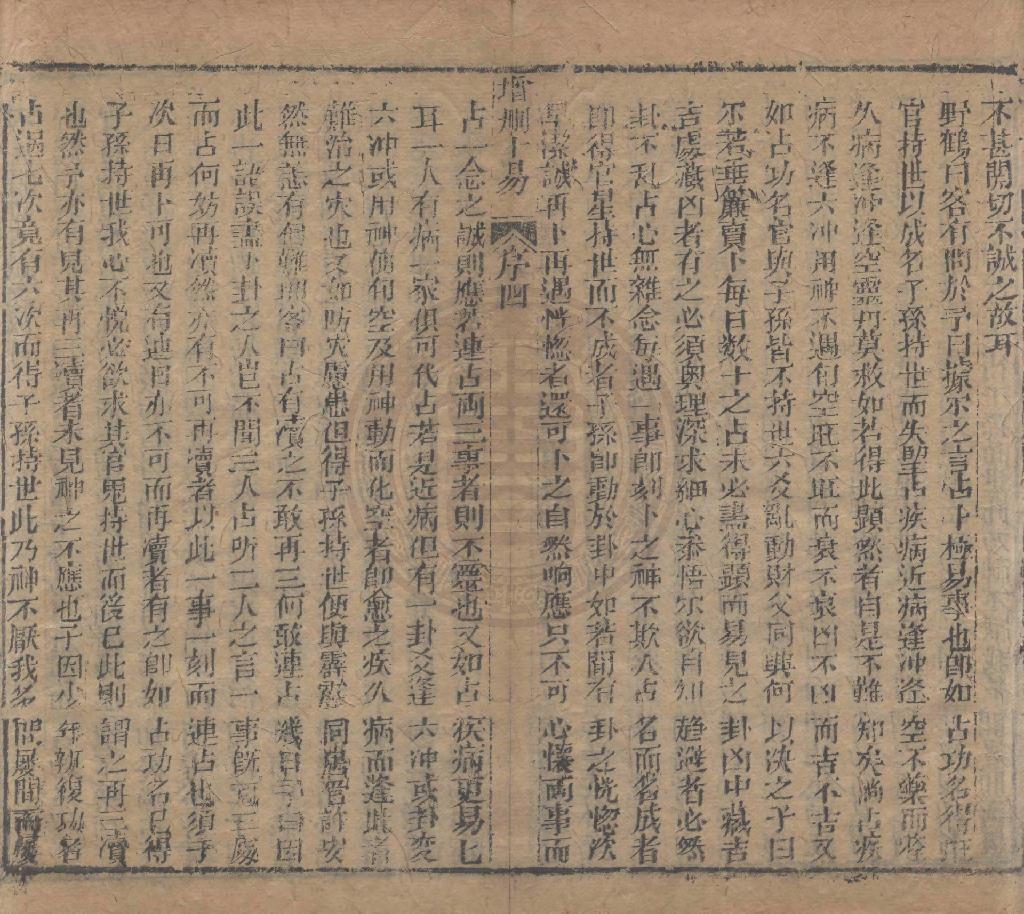 不甚關切不誠之故耳
野鶴曰客有問於予曰據尔之言占卜極易事也卽如占功名得旺
官持世以成名子孫持世而失望占疾病近病逢冲逢空不藥而痊
久病逢冲逢空靈丹莫救如若得此顯然者自是不難知矣倘占疾
病不逢六冲用神不遇旬空旺不旺而衰不衰凶不凶而吉不吉又
如占功名官與子孫皆不持世六爻亂動財父同興何以决之予曰
尔若垂簾賣卜每日数十之占未必盡得顯而易見之卦凶中藏吉
吉處藏凶者有之必須奥理深求細心叅悟尔欲自知趋避者必然
卦不乱占心無雜念每遇一事卽刻卜之神不欺人占名而名成者
卽得官星持世而不成者子孫卽動於卦中如若間有卦之恍惚次
早潔誠再卜再遇恍惚者還可卜之自然响應只不可心懷兩事而
增删卜易 序 四
占一念之誠則應若連占兩三事者則不靈也又如占疾病更易七
耳一人有病一家俱可代占若是近病但有一卦爻逢六冲或卦變
六冲或用神值旬空及用神動而化空者卽愈之疾久病而逢此者
難治之灾也又如防灾慮患但得子孫持世便與霹靂同居管許安
然無恙有個難助答曰占有凟之不敢再三何敢連占幾日予曰因
此一語誤盡卦之人豈不聞三人占听二人之言一事旣可三處
而占何妨再凟然亦有不可再凟者以此一事一刻而連占也須于
次日再卜可也又有連日亦不可而再凟者有之卽如占功名已得
子孫持世我心不悅必欲求其官鬼持世而後已此則謂之再三凟
也然予亦有見其再三凟者未見神之不應也予因少年執複功名
占過七次竟有六次而得子孫持世此乃神不厭我多問屢問而屢